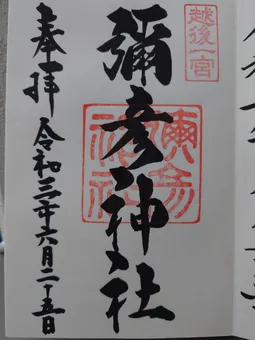 越後一宮
彌彦神社
奉拝 令和三年六月二十五日